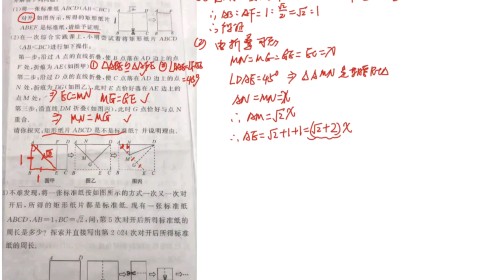 (1)将一张标准纸ABCD(AB<BC)
对开,如图所示,所得的矩形纸片
ABEF是标准纸.请给予证明.
(2)在一次综合实践课上,小明尝试着将矩形纸片ABCD
(AB<BC)进行如下操作:
第一步:沿过A点的直线折叠,使B点落在AD边上的点
F处,折痕为AE(如图甲);
第二步:沿过D点的直线折叠,使C点落在AD边上的点
N处,折痕为DG(如图乙),此时E点恰好落在AE边上的
点M处; ⇒ EC=MN MG=GE ✓
第三步:沿直线DM折叠(如图丙),此时G点恰好与点N
重合. ⇒ MN=MG ✓
请你探究:矩形纸片ABCD是不是标准纸?并说明理由.
图甲 图乙 图丙
不难发现,将一张标准纸按如图所示的方式一次又一次对
开后,所得的矩形纸片都是标准纸.现有一张标准纸
ABCD,AB=1,BC=√2,问:第5次对开后所得标准纸的
周长是多少?探索并直接写出第2 024次对开后所得标准
纸的周长.
∴ AB:AF=1:√2/2=√2=1
(2) 由折叠可知
MN=MG=GE=EC=X
∴ AM=√2X
AN=MN=X
∴ AE=√2+1+1=(√2+2)X